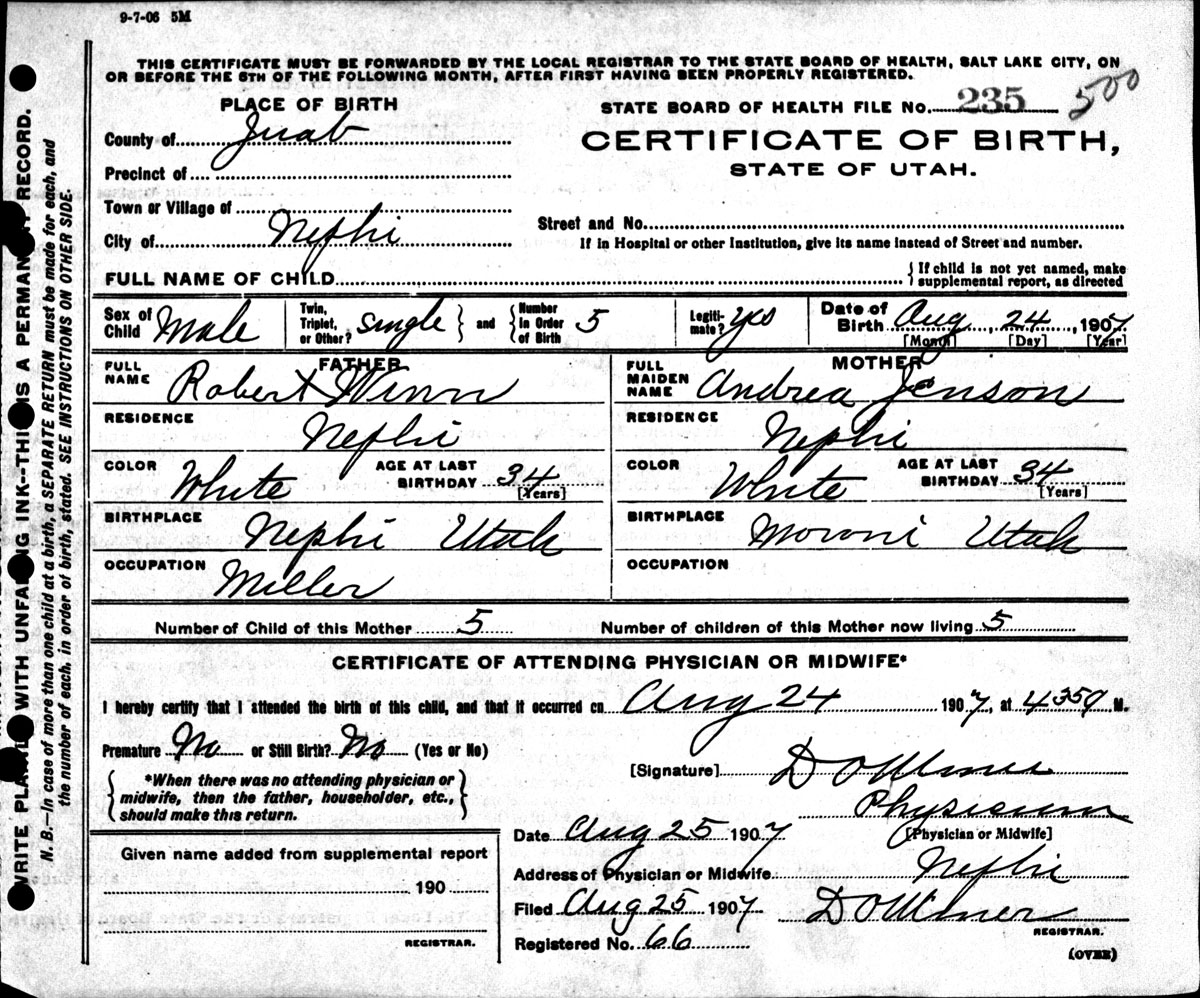 9-7-06 5M
THIS CERTIFICATE MUST BE FORWARDED BY THE LOCAL REGISTRAR TO THE STATE BOARD OF HEALTH, SALT LAKE CITY, ON
OR BEFORE THE 5TH OF THE FOLLOWING MONTH, AFTER FIRST HAVING BEEN PROPERLY REGISTERED.
PLACE OF BIRTH
STATE BOARD OF HEALTH FILE NO. 235 500
County of Juab
CERTIFICATE OF BIRTH,
STATE OF UTAH.
Precinct of
Town or Village of
Street and No.
City of Nephi
If in Hospital or other Institution, give its name instead of Street and number.
FULL NAME OF CHILD
{ If child is not yet named, make
supplemental report, as directed
Sex of Child Male
Twin, Triplet, or Other? single } and { Number in Order of Birth 5
Legiti-mate? yes
Date of Birth Aug, 24, 1907
[Month] [Day] [Year]
FATHER
FULL NAME Robert Winn
RESIDENCE Nephi
COLOR White AGE AT LAST BIRTHDAY 34 [Years]
BIRTHPLACE Nephi Utah
OCCUPATION Miller
MOTHER
FULL MAIDEN NAME Andrea Jenson
RESIDENCE Nephi
COLOR White AGE AT LAST BIRTHDAY 34 [Years]
BIRTHPLACE Moroni Utah
OCCUPATION
Number of Child of this Mother 5 Number of children of this Mother now living 5
CERTIFICATE OF ATTENDING PHYSICIAN OR MIDWIFE*
I hereby certify that I attended the birth of this child, and that it occurred on Aug 24 1907, at 435 M.
Premature No or Still Birth? No (Yes or No)
[Signature]
Physician
[Physician or Midwife]
{ *When there was no attending physician or
midwife, then the father, householder, etc.,
should make this return. }
Date Aug 25 1907
Given name added from supplemental report
190
REGISTRAR.
Address of Physician or Midwife Nephi
Filed Aug 25 1907
REGISTRAR.
Registered No. 66
(OVER)
WRITE PLAINLY WITH UNFADING INK--THIS IS A PERMANENT RECORD.
N. B.—In case of more than one child at a birth, a SEPARATE RETURN must be made for each, and
the number of each, in order of birth, stated. SEE INSTRUCTIONS ON OTHER SIDE.